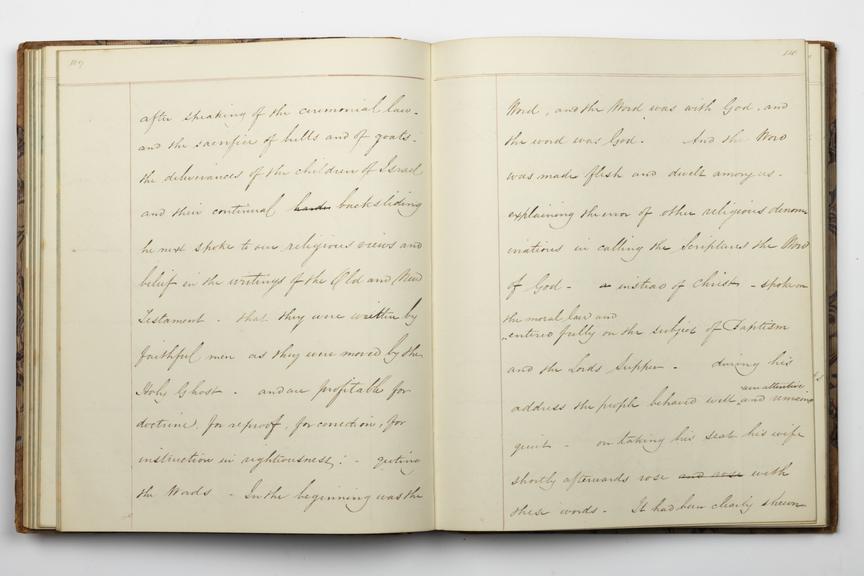 after speaking of the ceremonial law -
and the sacrifice of bulls and of goats -
the deliverances of the children of Israel
and their continual backsliding
he next spoke to our religious views and
belief in the writings of the Old and New
Testament - that they were written by
faithful men as they were moved by the
Holy Ghost - and are profitable for
doctrine, for reproof, for correction, for
instruction in righteousness: - quoting
the Words - In the beginning was the
Word, and the Word was with God, and
the word was God. And the Word
was made flesh and dwelt among us -
explaining the error of other religious denom
inations in calling the Scriptures the Word
of God - instead of Christ - spoke on
the moral law and
entered fully on the subject of Baptism
and the Lords Supper - during his
was attentive
address the people behaved well and
quiet - on taking his seat his wife
shortly afterwards rose and rose with
these words - It had been clearly shewn